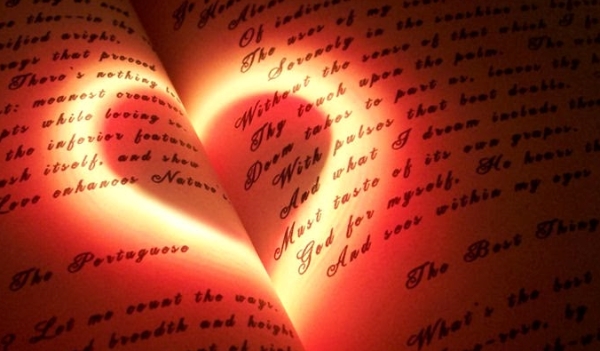 thee—to thy
rified aright.
ways that proceed
There's nothing l
st: meanest creature
pts while loving so.
the inferior features
sh itself, and show
Love enhances Nature's
The Portuguese
? Let me count the ways.
d breadth and height
of my
Alone
Of individ
The uses of my
Serenely in the sunshine as before
Without the sense of that which I fo
Thy touch upon the palm. The wi
Doom takes to part us, leaves thy h
With pulses that beat double.
And what I dream include thee
Must taste of its own grapes.
God for myself, He hears th
And sees within my eyes
The Best Thing
What's the best
-rose, by